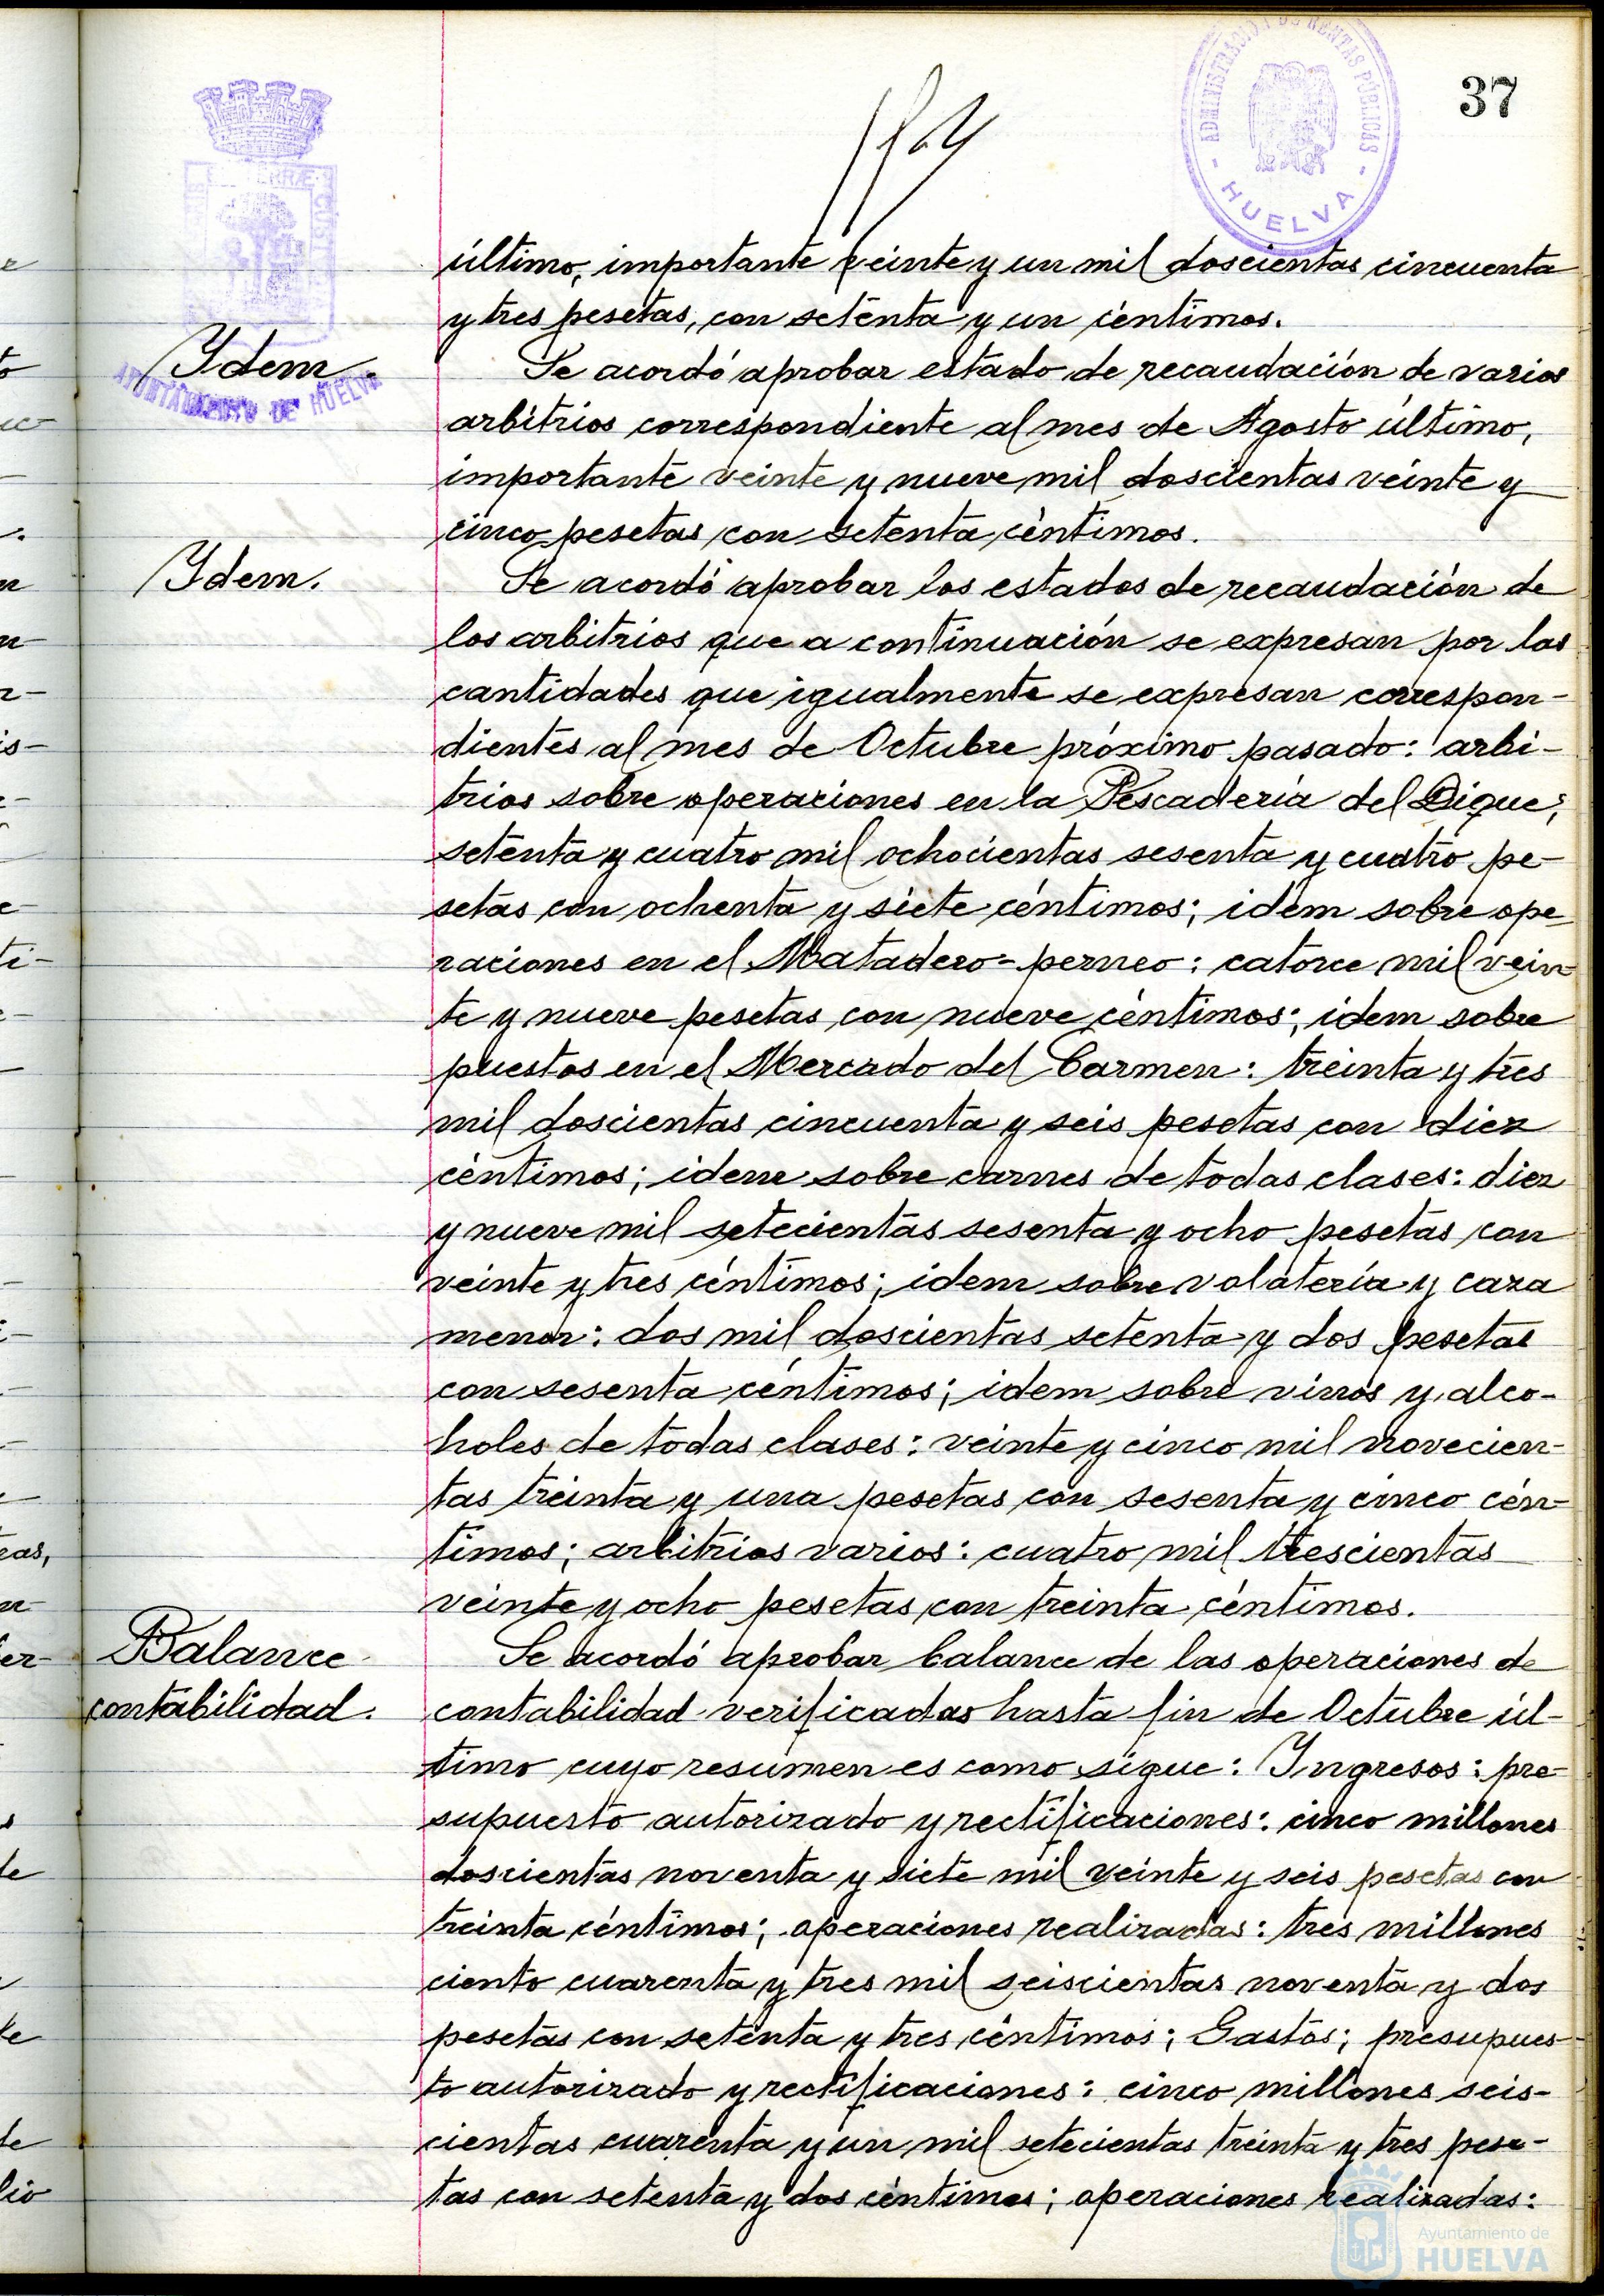 37
ADMINISTRACIÓN DE RENTAS PÚBLICAS
- HUELVA -
AYUNTAMIENTO DE HUELVA
último, importante veinte y un mil doscientas cincuenta
y tres pesetas, con setenta y un céntimos.
Ydem.
Se acordó aprobar estado de recaudación de varios
arbitrios correspondiente al mes de Agosto último,
importante veinte y nueve mil doscientas veinte y
cinco pesetas con setenta céntimos.
Ydem.
Se acordó aprobar los estados de recaudación de
los arbitrios que a continuación se expresan por las
cantidades que igualmente se expresan correspon-
dientes al mes de Octubre próximo pasado: arbi-
trios sobre operaciones en la Pescadería del Dique;
setenta y cuatro mil ochocientas sesenta y cuatro pe-
setas con ochenta y siete céntimos; idem sobre ope-
raciones en el Matadero-perneo: catorce mil vein-
te y nueve pesetas con nueve céntimos; idem sobre
puestos en el Mercado del Carmen: treinta y tres
mil doscientas cincuenta y seis pesetas con diez
céntimos; idem sobre carnes de todas clases: diez
y nueve mil setecientas sesenta y ocho pesetas con
veinte y tres céntimos; idem sobre volatería y caza
menor: dos mil doscientas setenta y dos pesetas
con sesenta céntimos; idem sobre vinos y alco-
holes de todas clases: veinte y cinco mil novecien-
tas treinta y una pesetas con sesenta y cinco cén-
timos; arbitrios varios: cuatro mil trescientas
veinte y ocho pesetas con treinta céntimos.
Balance
contabilidad.
Se acordó aprobar balance de las operaciones de
contabilidad verificadas hasta fin de Octubre úl-
timo cuyo resumen es como sigue: Yngresos: pre-
supuesto autorizado y rectificaciones: cinco millones
doscientas noventa y siete mil veinte y seis pesetas con
treinta céntimos; operaciones realizadas: tres millones
ciento cuarenta y tres mil seiscientas noventa y dos
pesetas con setenta y tres céntimos; Gastos; presupues-
to autorizado y rectificaciones: cinco millones seis-
cientas cuarenta y un mil setecientas treinta y tres pese-
tas con setenta y dos céntimos; operaciones realizadas:
Ayuntamiento de
HUELVA